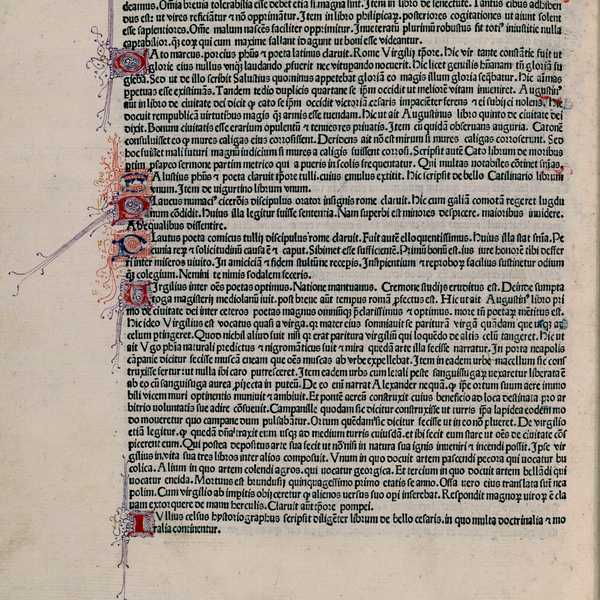 deamus. Omnia brevia tolerabilia esse debet etiā si magna sint. Item in libro de senectute. Tantus cibus adhiben
dus est ut vires reficiātur & nō opprimātur. Item in libro philipicaꝝ. posteriores cogitationes ut aiunt solent
esse sapientiores. Ome malum nascēs faciliter opprimitur. Inueteratū plerūnꝫ robustius fit toti⁹ iniusticie nulla
captabilior. ꝙ̄ eoꝝ qui cum maxime fallant id agunt ut boni esse videantur.
CAto marcus. porcius phūs & poeta latinus claruit. Rome Virgilij tꝑore. Hic vir tante constātie fuit ut
glorie eius nullus vnqꝫ laudando ꝓfuerit nec vitupando nocuerit.
gieba. Sed ut de illo scribit Salustius quominus appetebat gloriā eo magis illum gloria seqꝫbatur. Hic aīmas
ꝑpetuas esse existimās. Tandem tedio duplicis quartane se ip̄m occidit ut meliorē vitam inueniret. Augustin⁹
aūt in libro de ciuitate dei dicit ꝙ cato se ip̄m occidit victoriā cesaris impaciēter ferens & ei subijci nolens. Hic
docuit rempublicā virtutibus magis ꝙ̄ armis esse tuendam. Hic ut ait Augustinus libro quinto de ciuitate dei
dixit. Bonum ciuitatis esse erarium opulentū & tenues res priuatas. Item cū quidā obseruans auguria. Catonē
consuluisset eo ꝙ mures caligas eius corrosissent. Deridens ait nō est mirum si mures caligas corroserunt. Sed
hoc fuisset mali futuri magnū indicium si mures a caligis fuissent corrosi. Scripsit aut Cato librum de moribus
ptim psapeo sermone partim metrico qui a pueris in scolis frequentatur. Qui multas notabiles cōtinet sn̄ias.
SAlustius phūs & poeta claruit tꝑore tulli. cuius emulus extitit. Hic scripsit de bello Catilinario librum
vnum. Item de iugurtino librum vnum.
PLaucus numaci⁹ ciceroīs discipulus orator insignis rome claruit. Hic cum galiā comotā regeret lugdu
num cōdidit. Huius illa legitur fuisse sententia. Nam superbi est minores despicere. maioribus inuidere.
Ab equalibus dissentire.
PLautus poeta comicus tullij discipulus rome claruit. Fuit autē elloquentissimus. Huius illa stat snīa. Pe
cunia reꝝ & solicitudinū causa ē & caput. Sibinet esse sufficientē. Primū bonū est. ius iure honorē tibi deffer
ri inter miseros viuito. In amiciciā & fidem stultūne recepis. Insipientiū & reproboꝝ facilius sustinetur odium
ꝙ̄ collegium. Nemini te nimis sodalem feceris.
VIrgilius inter oēs poetas optimus. Natione mantuanus. Cremone studijs eruditus est. Deinde sumpta
toga magisterij mediolanū iuit. post breve aūt tempus romā ꝓfectus est. Hic ut ait Augustin⁹ libro pri
mo de ciuitate dei inter ceteros poetas magnus omniūqꝫ p̄clarissimus & optimus. more tn̄ poetaꝝ mētitus est.
Hic ideo Virgilius est vocatus quasi a virga. ꝙ mater eius somniauit se pariturā virgā quādam que usqꝫ ad
celum ptingeret. Quod nichil aliud fuit nisi ꝙ erat paritura virgiliū qui loquēdo de altis celū tangeret. Hic ut
ait Vgo phīa naturali predictus & nigromāticus fuit & mira quedā arte illa fecisse narratur. In porta neapolis
cāpanie dicitur fecisse muscā eneam que oēs muscas ab vrbe expellebat. Item in eadem urbe macellum sic con
struxisse fertur: ut nulla ibi caro putresceret. Item eadem urbs cum letali peste sanguisugaꝝ vexaretur liberata ē
ab eo cū sanguisuga aurea. ꝓiecta in puteū. De eo enī narrat Alexander nequā. ꝙ ip̄e ortum suum aere immo
bili vicem muri optinentis muniuit & ambiuit. Et pontē aerem construxit cuius beneficio ad loca destinata pro ar
bitrio voluntatis sue adire cōsueuit. Campanille quodam sic dicitur construxisse ut turris ip̄a lapidea eodem mo
do moueretur quo campane dum pulsabātur. Ortum quēdā insuper dicitur fecisse ut in eo nō plueret. De virgilio
etiā legitur. ꝙ quedā dn̄a traxit eum usqꝫ ad medium turris cuiusdā. et ibi fecit eum stare ut oēs de ciuitate cōs
picerent eum. Qui postea depositus arte sua fecit ut nō nisi in natura sua ignis inueniri & incendi possit. Ipse vir
gilius in vita sua tres libros inter alios composuit. Vnum in quo docuit artem pascendi pecora qui vocatur bu
colica. Alium in quo artem colendi agros. qui vocatur georgica. Et tercium in quo docuit artem bellādi qui
vocatur eneida. Mortuus est brundusij quinquagesimo primo etatis se anno. Ossa vero eius translata sunt nea
polim. Cum virgilio ab impitis obijceretur ꝙ alienos versus suo opi inserebat. Respondit magnoꝝ viroꝝ ē cla
uam extorquere de manu herculis. Claruit aūt tꝑore pompei.
IVllius celsus hystoriographus scripsit diligēter librum de bello cesaris. in quo multa doctrinalia & mo
ralia continentur.